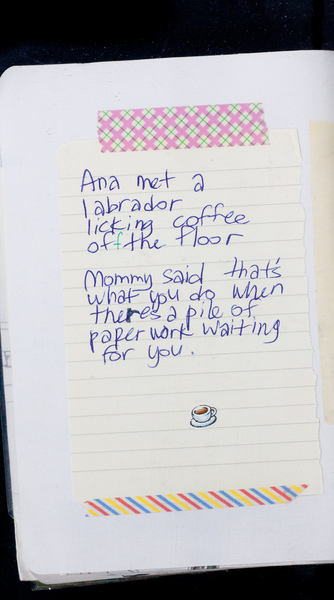 Ana met a
labrador
licking coffee
off the floor
Mommy said that's
what you do when
there's a pile of
paper work waiting
for you.